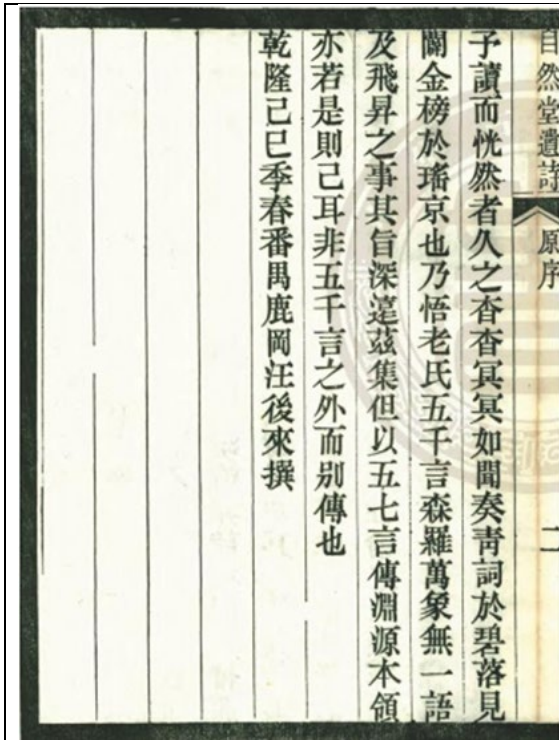 自然堂遺詩 原序 二
予讀而恍然者久之杳杳冥冥如聞奏青詞於碧落見
闢金榜於瑤京也乃悟老氏五千言森羅萬象無一語
及飛昇之事其旨深遠茲集但以五七言傳淵源本領
亦若是則己耳非五千言之外而別傳也
乾隆己巳季春番禺鹿岡汪後來撰